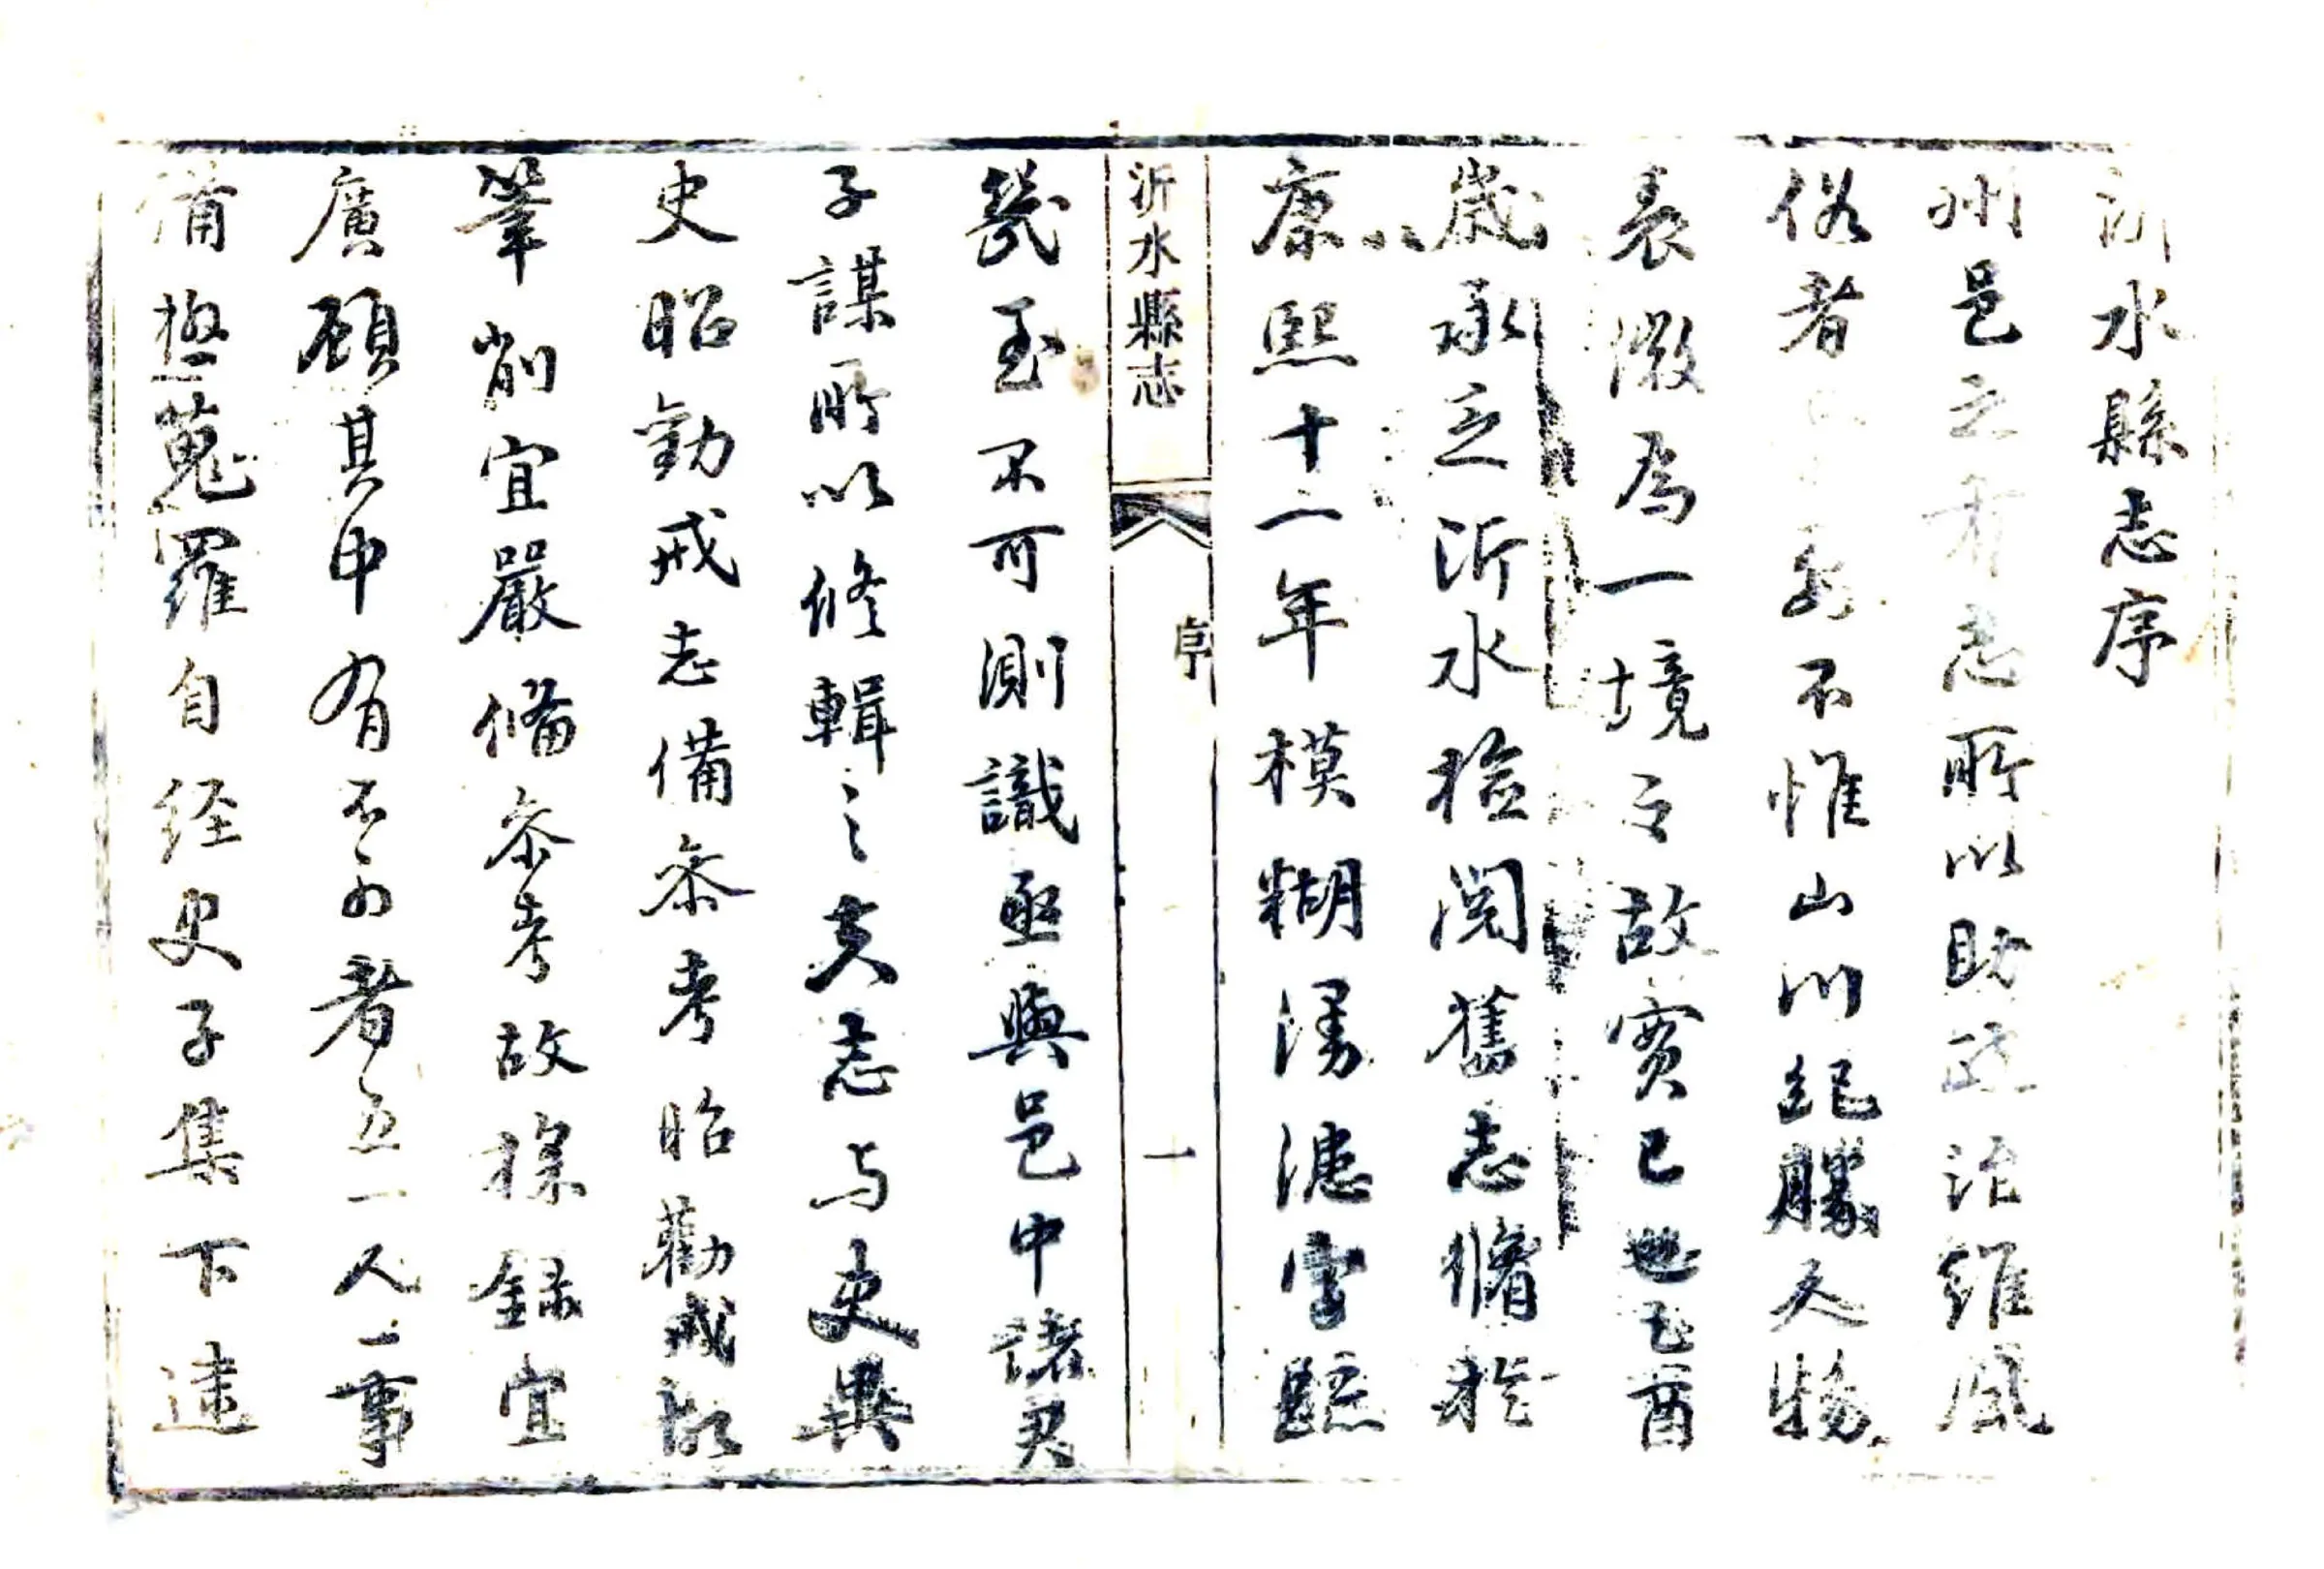 沂水縣志序
州邑之有志所以助政治維風
俗者不惟山川紀勝人物
表徵為一境之故實已也乙酉
歲承乏沂水檢閱舊志脩於
康熙十一年模糊漫漶字跡
沂水縣志
序
一
幾至不可測識亟與邑中諸君
子謀所以修輯之夫志与史異
史昭勸戒志備叅考昭勸戒故
筆削宜嚴備叅考故採録宜
廣顧其中有不尒者五一人一事
蒐羅自経史子集下逮